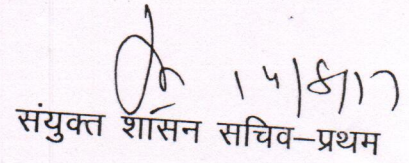 14/8/17
संयुक्त शासन सचिव–प्रथम